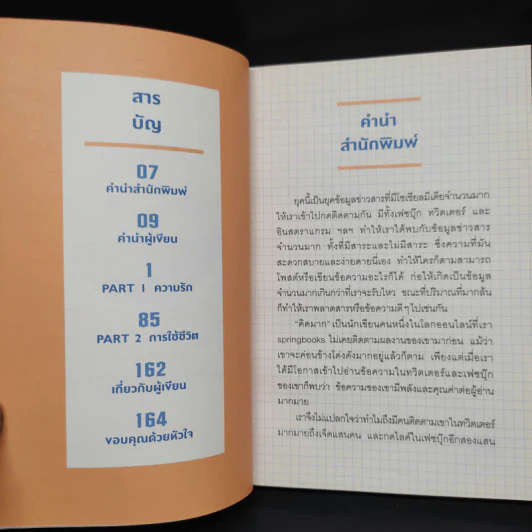 สาร
บัญ
07
คำนำสำนักพิมพ์
09
คำนำผู้เขียน
1
PART 1 ความรัก
85
PART 2 การใช้ชีวิต
162
เกี่ยวกับผู้เขียน
164
ขอบคุณด้วยหัวใจ
คำนำ
สำนักพิมพ์
ยุคนี้เป็นยุคข้อมูลข่าวสารที่มีโซเชียลมีเดียจำนวนมาก
ให้เราเข้าไปกดติดตามกัน มีทั้งเฟซบุ๊ก ทวิตเตอร์ และ
อินสตราแกรม ฯลฯ ทำให้เราได้พบกับข้อมูลข่าวสาร
จำนวนมาก ทั้งที่มีสาระและไม่มีสาระ ซึ่งความที่มัน
สะดวกสบายและง่ายดายนี่เอง ทำให้ใครก็ตามสามารถ
โพสต์หรือเขียนข้อความอะไรก็ได้ ก่อให้เกิดเป็นข้อมูล
จำนวนมากเกินกว่าที่เราจะรับไหว ขณะที่ปริมาณที่มากล้น
ก็ทำให้เราพลาดสารหรือข้อความดีๆ ไปเช่นกัน
"คิดมาก" เป็นนักเขียนคนหนึ่งในโลกออนไลน์ที่เรา
springbooks ไม่เคยติดตามผลงานของเขามาก่อน แม้ว่า
เขาจะค่อนข้างโด่งดังมากอยู่แล้วก็ตาม เพียงแต่เมื่อเรา
ได้มีโอกาสเข้าไปอ่านข้อความในทวิตเตอร์และเฟซบุ๊ก
ของเขาก็พบว่า ข้อความของเขามีพลังและคุณค่าต่อผู้อ่าน
มากมาย
เราจึงไม่แปลกใจว่าทำไมถึงมีคนติดตามเขาในทวิตเตอร์
มากมายถึงเจ็ดแสนคน และกดไลค์ในเฟซบุ๊กอีกสองแสน